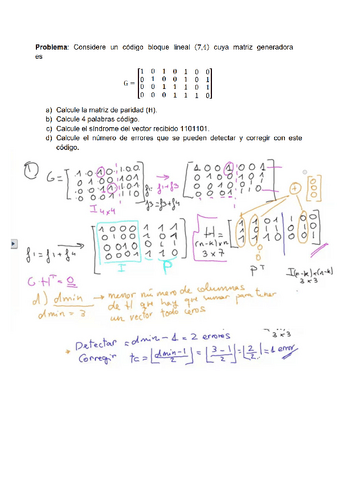 Problema: Considere un código bloque lineal (7,4) cuya matriz generadora
es
G =
1 0 1 0 1 0 0
0 1 0 0 1 0 1
0 0 1 1 1 0 1
0 0 0 1 1 1 0
a) Calcule la matriz de paridad (H).
b) Calcule 4 palabras código.
c) Calcule el síndrome del vector recibido 1101101.
d) Calcule el número de errores que se pueden detectar y corregir con este
código.
①
G =
I 4x4
f1 = f1+f3
f3 = f3+f4
f1 = f1+f4
1 0 0 0 1 1 1
0 1 0 0 1 0 1
0 0 1 0 0 1 1
0 0 0 1 1 1 0
I P
H =
(n-k)xn
3x7
1 1 0 1 1 0 0
1 0 1 1 0 1 0
1 1 1 0 0 0 1
P^T
I(n-k)x(n-k)
3x3
G·H^T = 0
d) dmin → menor número de columnas
de H que hay que sumar para tener
un vector todo ceros
dmin = 3
3x3
* Detectar = dmin - 1 = 2 errores
Corregir tc = ⌊dmin-1/2⌋ = ⌊3-1/2⌋ = ⌊2/2⌋ = 1 error